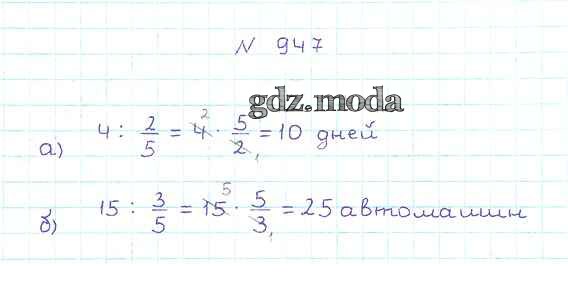 N 947
gdz.moda
а) 4 : 2/5 = 4² · 5/2₁ = 10 дней
б) 15 : 3/5 = 15⁵ · 5/3₁ = 25 автомашин